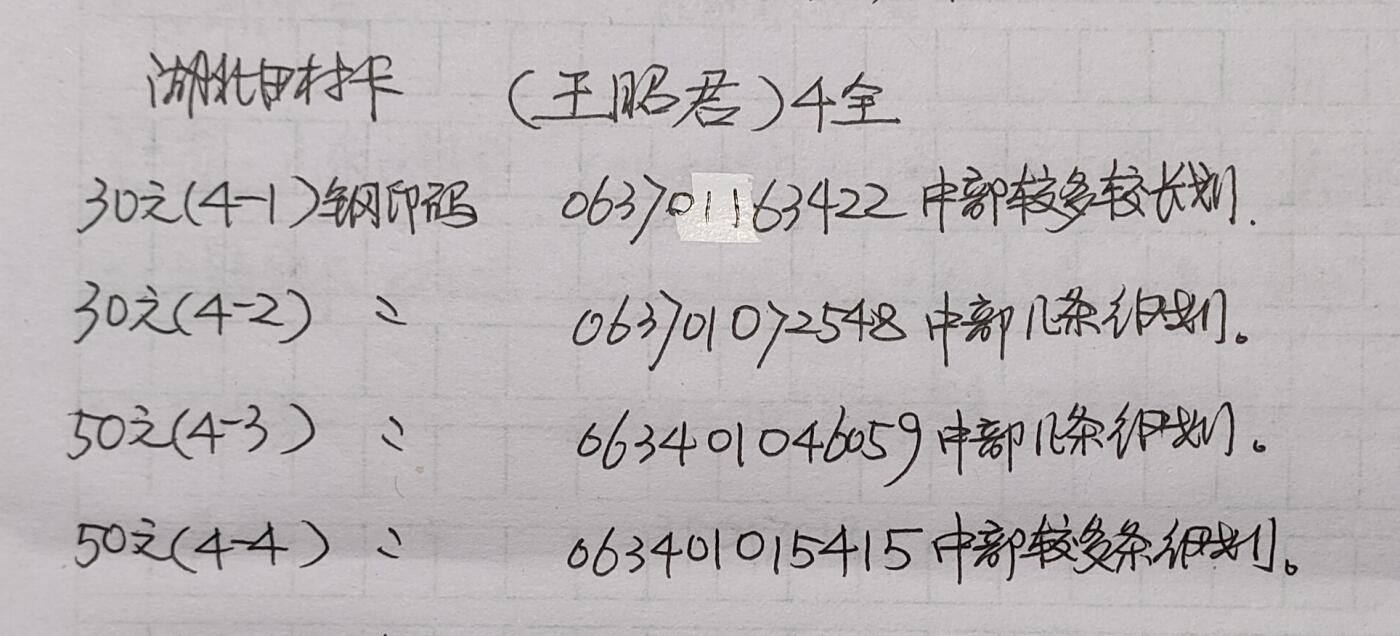 湖北田村卡 (王昭君)4全
30元(4-1)钢印码 063701163422 中部较多较长划.
30元(4-2) 〃 063701072548 中部几条细划。
50元(4-3) 〃 063401046059 中部几条细划。
50元(4-4) 〃 063401015415 中部较多条细划。